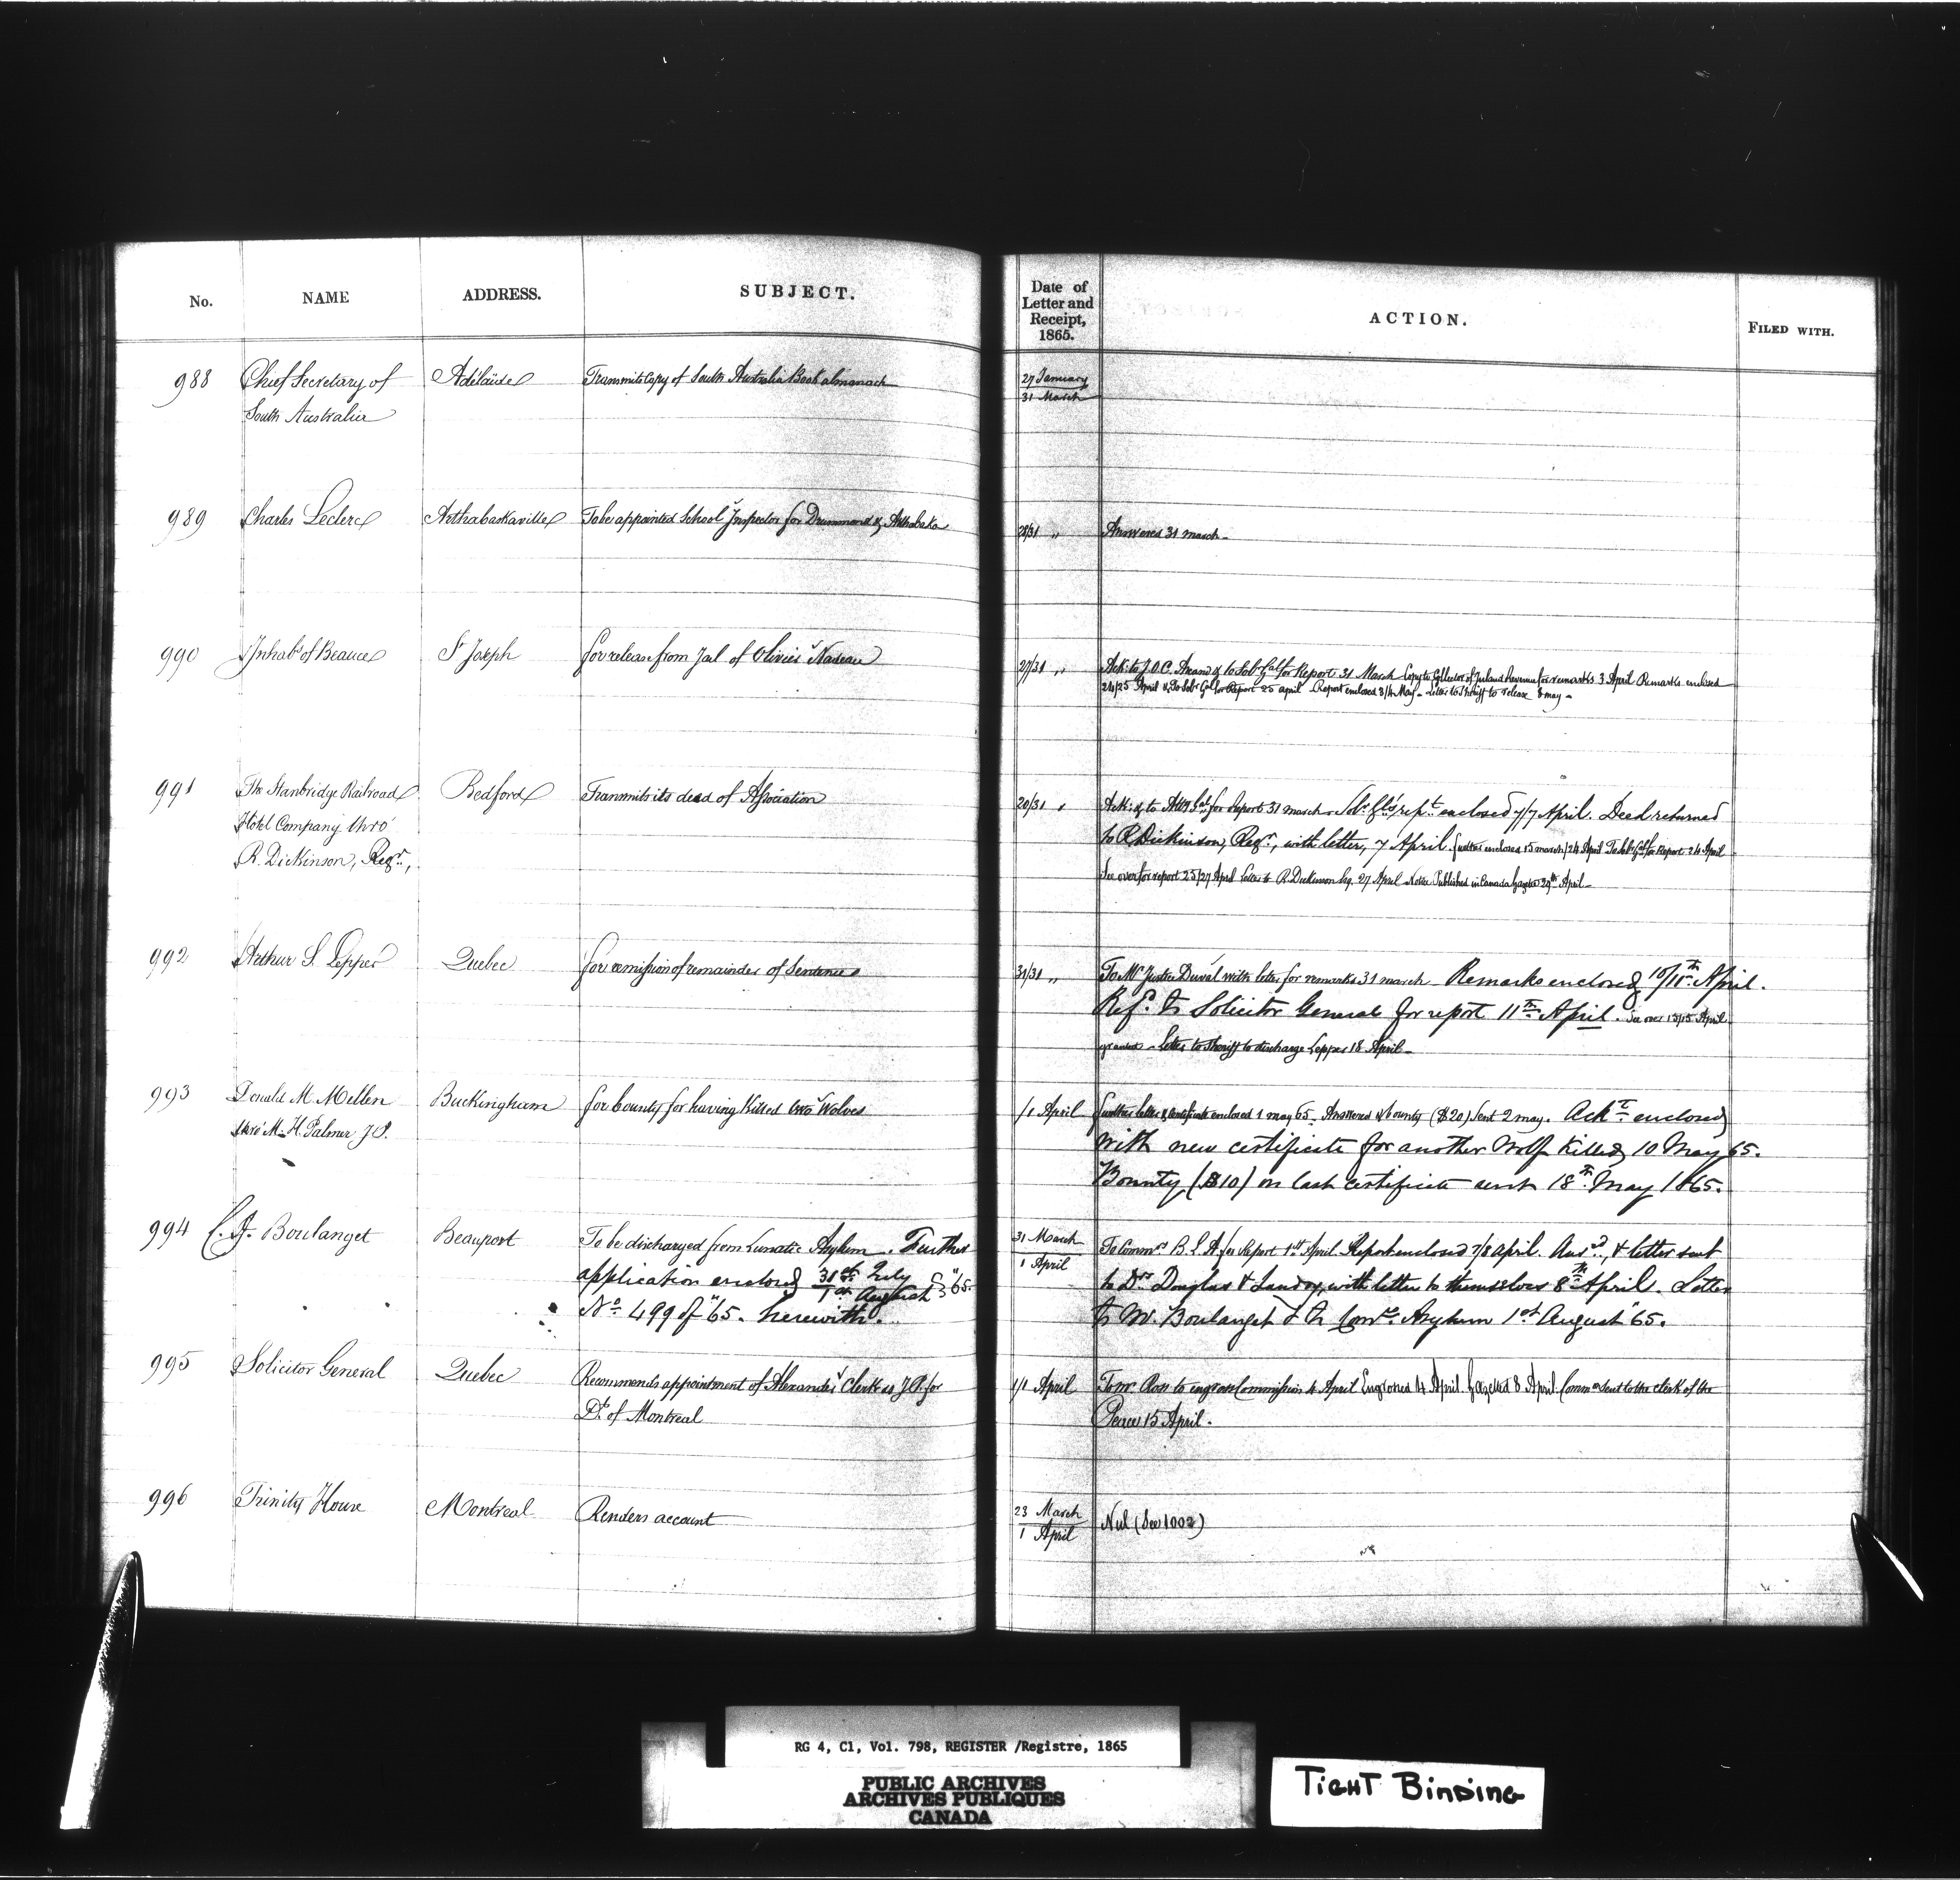 No. NAME ADDRESS. SUBJECT. Date of Letter and Receipt, 1865. ACTION. FILED WITH.
988 Chief Secretary of Adelaide Transmits Copy of South Australia Book almanach 27 January
South Australia 31 March
989 Charles Leclerc Arthabaskaville To be appointed School Inspector for Drummond & Arthabaska 28/31 " Answered 31 march -
990 Inhabs of Beauce St Joseph for release from Jail of Olivier Nadeau 27/31 " Ack: to J.O.C. & to Solr Genl for Report 31 March Copy to Collector of Inland Revenue for remarks 3 April Remarks enclosed
24/25 April & To Solr Gl for Report 25 april Report enclosed 3/4 May - Letter to Sheriff to release 8 may -
991 The Stanbridge Railroad Bedford Transmits its deed of Association 20/31 " Ack: & to Atty Genl for Report 31 march - Solr Gl's rept enclosed 7/7 April. Deed returned
Hotel Company thro' to R Dickinson, Regr, with letter, 7 April. further enclosed 15 march/24 April To Solr Gl for Report 24 April
R. Dickinson, Regr, See over for report 25/27 April Letter to R. Dickinson Esq. 27 April Notice Published in Canada Gazette 29th April -
992 Arthur S. Lepper Quebec for remission of remainder of Sentence 31/31 " To Mr Justice Duval with letter for remarks 31 march - Remarks enclosed 10/11th April.
Ref. to Solicitor General for report 11th April. See over 13/15 April
granted - Letter to Sheriff to discharge Lepper 18 April -
993 Donald Mc Mellen Buckingham for bounty for having Killed two Wolves /1 April further letter & Certificate enclosed 1 may 65. Answered & bounty ($20) Sent 2 may. Ackt enclosed
thro' M. H. Palmer J.P. with new certificate for another Wolf killed, 10 May 65.
Bounty ($10) on last certificate sent 18th May 1865.
994 C. J. Boulanget Beauport To be discharged from Lunatic Asylum. Further 31 March To Commrs B. L. A. for Report 1st April. Report enclosed 7/8 april. Ansd, & letter sent
application enclosed 31st July "65. 1 April to Drs Douglas & Landry, with letter to themselves 8th April. Letter
1st August
No 499 of "65. herewith. to M. Boulanget & to Comrs. Asylum 1st August '65.
995 Solicitor General Quebec Recommends appointment of Alexander Clerk as J.P. for 1/1 April To Mr Ross to engross Commission 4 April Engrossed 4 April Gazetted 8 April Commn sent to the clerk of the
Dt. of Montreal Peace 15 April.
996 Trinity House Montreal Renders account 23 March Nul (See 1002)
1 April
RG 4, C1, Vol. 798, REGISTER /Registre, 1865
PUBLIC ARCHIVES
ARCHIVES PUBLIQUES
CANADA
TIGHT BINDING